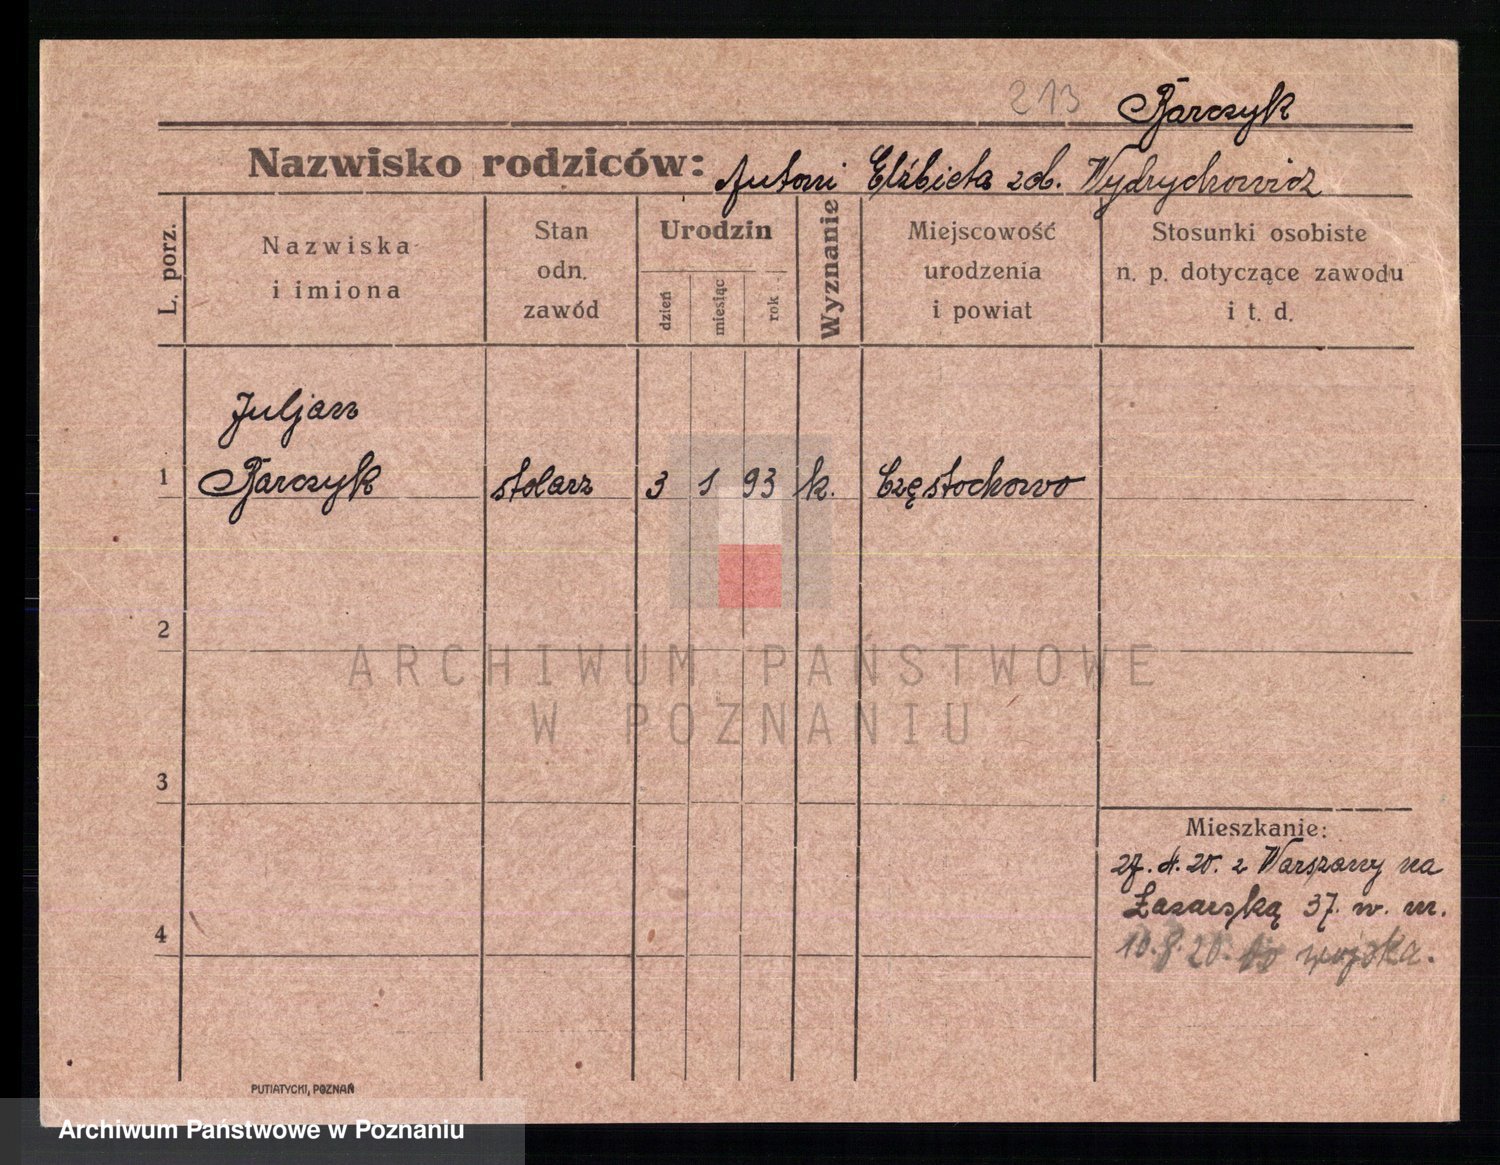 213 Barczyk
Nazwisko rodziców: Antoni Elżbieta zd. Wydrychowicz
L. porz.
Nazwiska
i imiona
Stan
odn.
zawód
Urodzin
dzień
miesiąc
rok
Wyznanie
Miejscowość
urodzenia
i powiat
Stosunki osobiste
n. p. dotyczące zawodu
i t. d.
Juljan
1 Barczyk stolarz 3 1 93 k. Częstochowo
2
ARCHIWUM PAŃSTWOWE
W POZNANIU
3
Mieszkanie:
27. 4. 20. z Warszawy na
Łazarską 37. w. m.
4
10. 8. 20. do wojska.
PUTIATYCKI, POZNAŃ
Archiwum Państwowe w Poznaniu